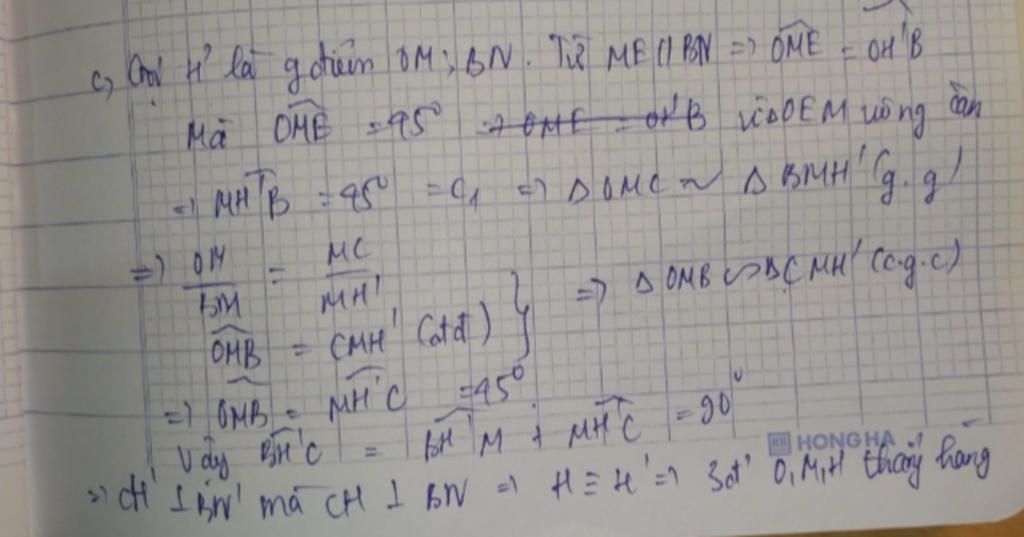 c, Gọi H' là g điểm OM; BN. Từ ME // BN => OME = OH'B
Mà OME = 45° => OME = OH'B vì ΔOEM vuông cân
=> MH'B = 45° = C₁ => Δ OMC ~ Δ BMH' (g.g)
=> OM/BM = MC/MH'
OMB = CMH' (đđ) } => Δ OMB ∽ Δ CMH' (c.g.c)
=> OMB = MH'C = 45°
Vậy BH'C = BH'M + MH'C = 90°
HONG HA
=> CH' ⊥ BN mà CH ⊥ BN => H ≡ H' => 3 đ' O, M, H thẳng hàng